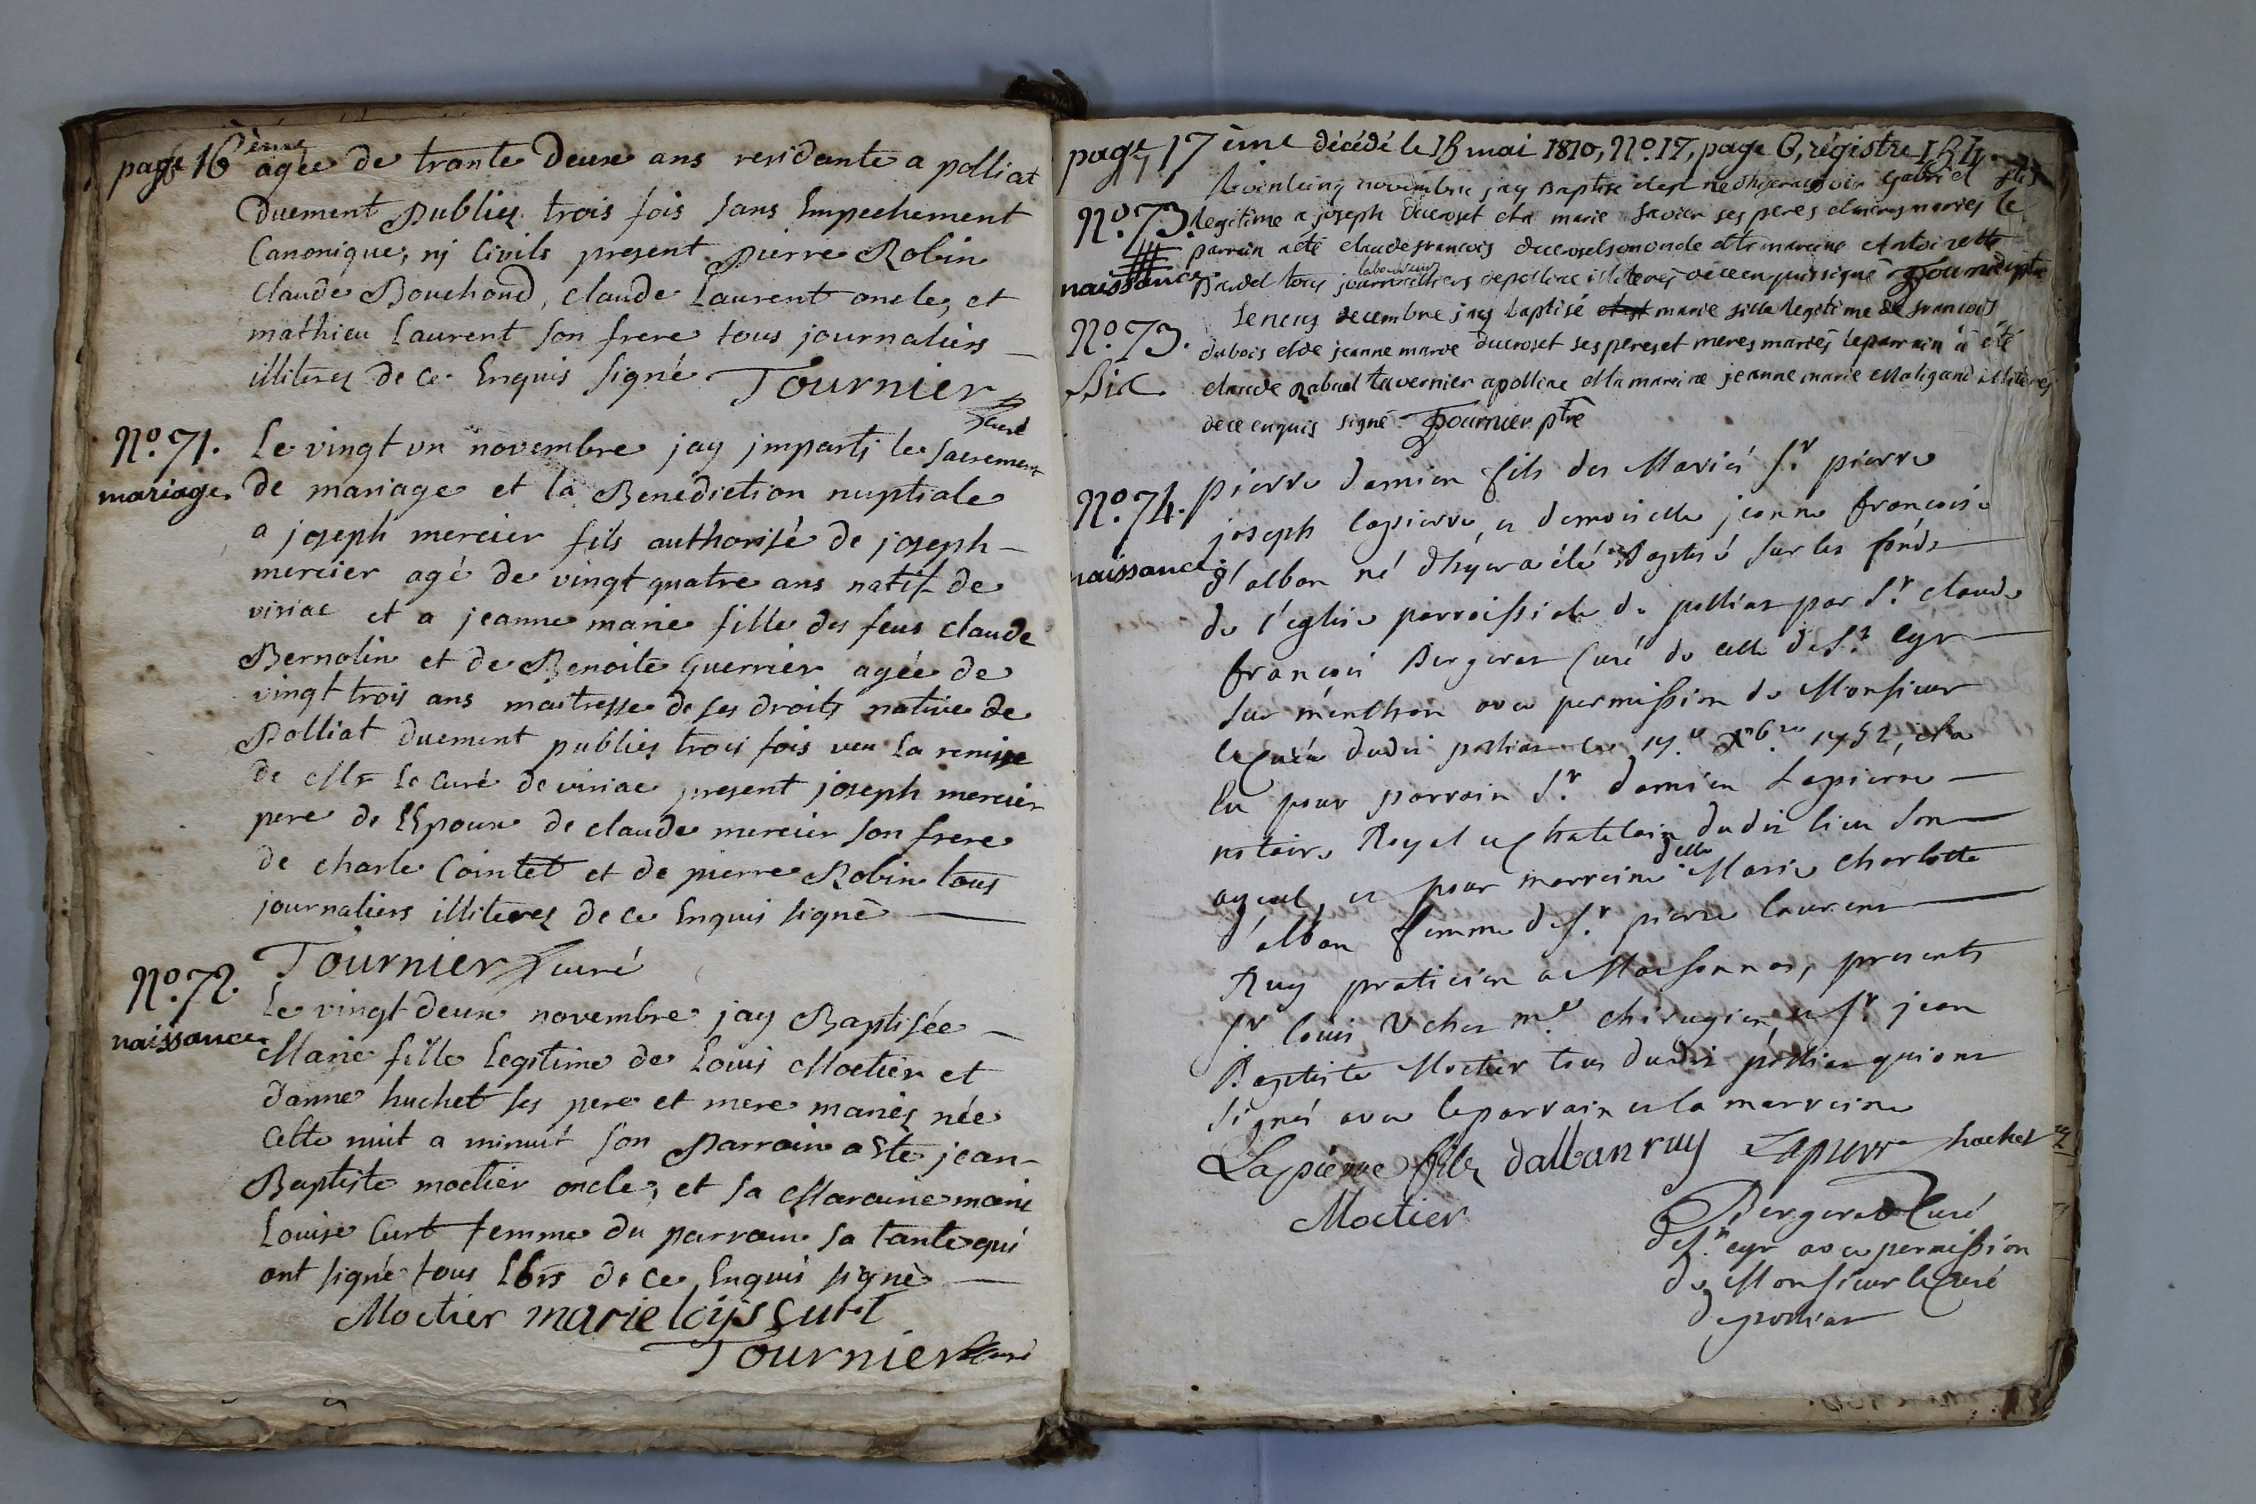 page 16ème
agée de trante Deux ans residante a polliat
Duement Publiez trois fois sans Empechement
Canonique, nj Civils present pierre Robin
Claude Bouchond, claude Laurent oncle, et
mathieu Laurent son frere tous journaliers
illiterez de ce Enquis signé Tournier
curé
No. 71.
mariage.
Le vingt un novembre jay jmparti le sacrement
de mariage et la Benediction nuptiale
a joseph mercier fils authorisé de joseph
mercier agé de vingt quatre ans natif de
viriac et a jeanne marie fille des feus claude
Bernolin et de Benoite Guerrier agée de
vingt trois ans maitresse de ses droits native de
Polliat duement publiez trois fois veu la remise
de Mr Le curé de viriac present joseph mercier
pere de l'Epoux de claude mercier son frere
de charle Cointet et de pierre Robin tous
journaliers illiterez de ce Enquis signé
Tournier curé
No. 72.
naissance.
Le vingt deux novembre jay Baptisée
Marie fille Legitime de Louis Moctier et
danne huchet ses pere et mere mariez née
cette nuit a minuit son Parrain a Eté jean
Baptiste moctier oncle, et sa Maraine marie
Louise Curt femme du parrain sa tante qui
ont signé tous de ce Enquis signé
Moctier marie loijs curt
Tournier curé
page 17ème décédé le 18 mai 1810, No. 17, page 6, régistre
No. 73.
naissance.
Le vintcinq novembre jay Baptisé né Gabriel fils
legitime a joseph ducroset et a marie savier ses peres et meres mariés le
parrain a eté claude francois ducroset son oncle et la maraine Antoinette
laboureurs
tous journalliers de polliac illiterés de ce enquis signé Tournier ptre
No. 73.
Bis.
Le neuf decembre jay baptisé et est marie fille legitime de francois
dubois et de jeanne marie ducroset ses peres et meres mariés le parrain a été
claude Rabuel tavernier a polliac et la maraine jeanne marie Maligand illiterés
de ce enquis signé Tournier ptre
No. 74.
naissance.
pierre damien fils des Mariés Sr. pierre
joseph lapierre, et demoiselle jeanne francoise
d'alban né d'hyer a été Baptisé sur les fonds
de l'eglise parroissiale de polliat par Sr. claude
francois Bergerat Curé de celle de St. Cyr
sur menthon avec permission de Monsieur
le Curé dudit polliat le 19.e Xbre 1752, et a
Eu pour parrain Sr. damien Lapierre
notaire Royal et Chatelain dudit lieu son
ayeul, et pour marraine delle Marie Charlotte
d'alban femme de Sr. pierre laurent
Ruy praticien a Marsonnas, presents
Sr. louis Vcher me. chirugien, et Sr. jean
Baptiste Moctier tous dudit polliat qui ont
signés avec le parrain et la marraine
Lapierre fils dalban ruy Lapierre
Moctier
Bergerat Curé
de St. cyr avec permission
de Monsieur le Curé
de polliat